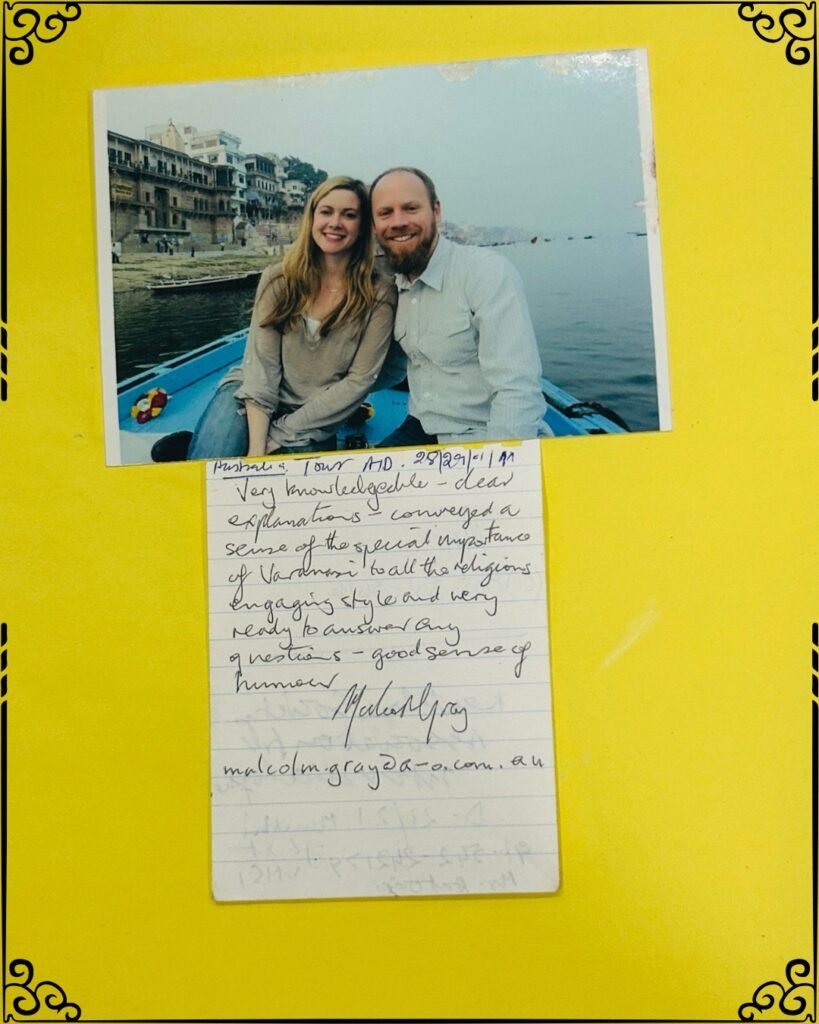 Australia Tour AD. 28/29/01/11
Very knowledgeable – clear
explanations – conveyed a
sense of the special importance
of Varanasi to all the religions
engaging style and very
ready to answer any
questions – good sense of
humour
Malcolm Gray
malcolm.gray@a-o.com.au